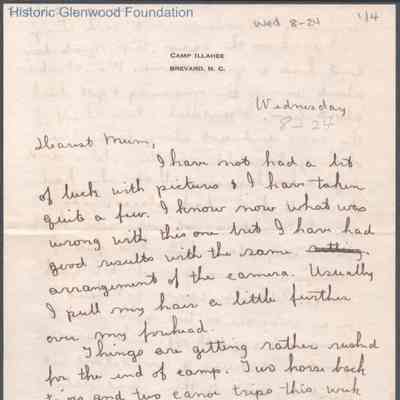 Historic Glenwood Foundation
Wed 8-24
1/4
CAMP ILLAHEE
BREVARD, N. C.
Wednesday
8-24
Dearest Mum,
I have not had a bit
of luck with pictures & I have taken
quite a few. I know now what was
wrong with this one but I have had
good results with the same
arrangement of the camera. Usually
I pull my hair a little further
over my forehead.
Things are getting rather rushed
for the end of camp. Two horse back
and two canoe trips this week